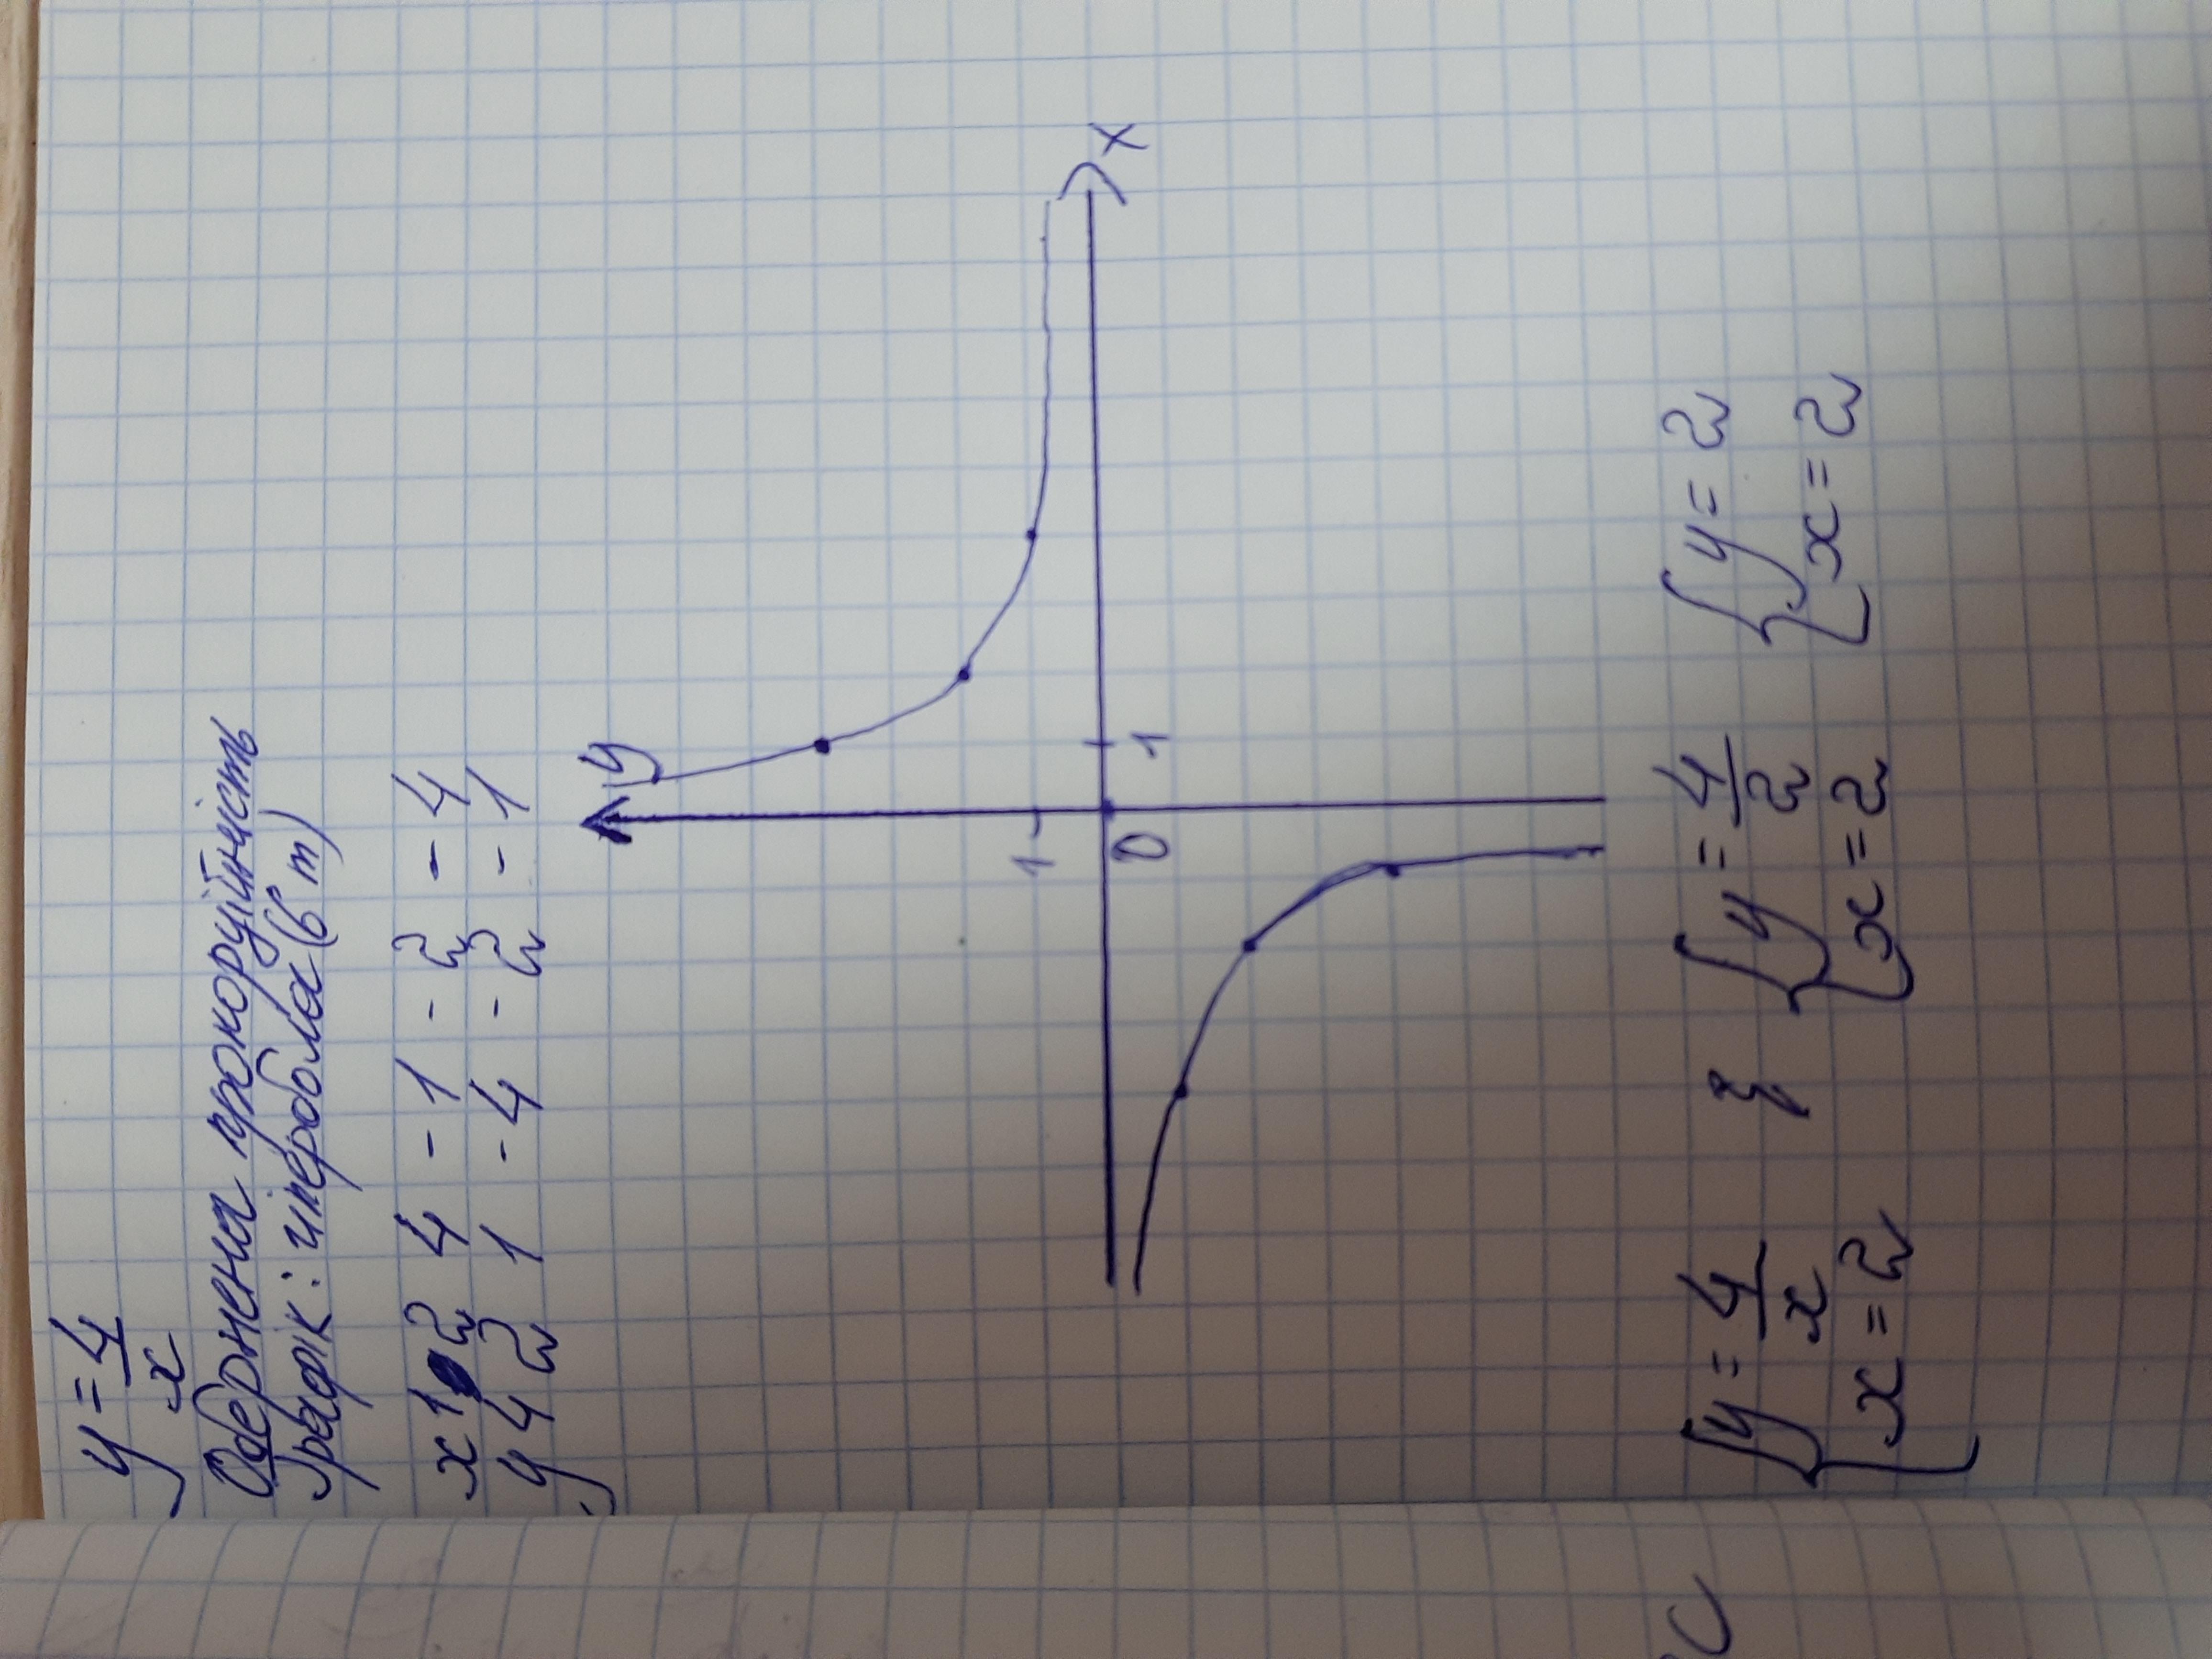 y = 4/x
Обернена прокорційність
Графік: гіпербола (6 т)
x 1 2 4 -1 -2 -4
y 4 2 1 -4 -2 -1
y
x
1
0
1
{ y = 4/x { y = 4/2 { y = 2
{ x = 2 { x = 2 { x = 2